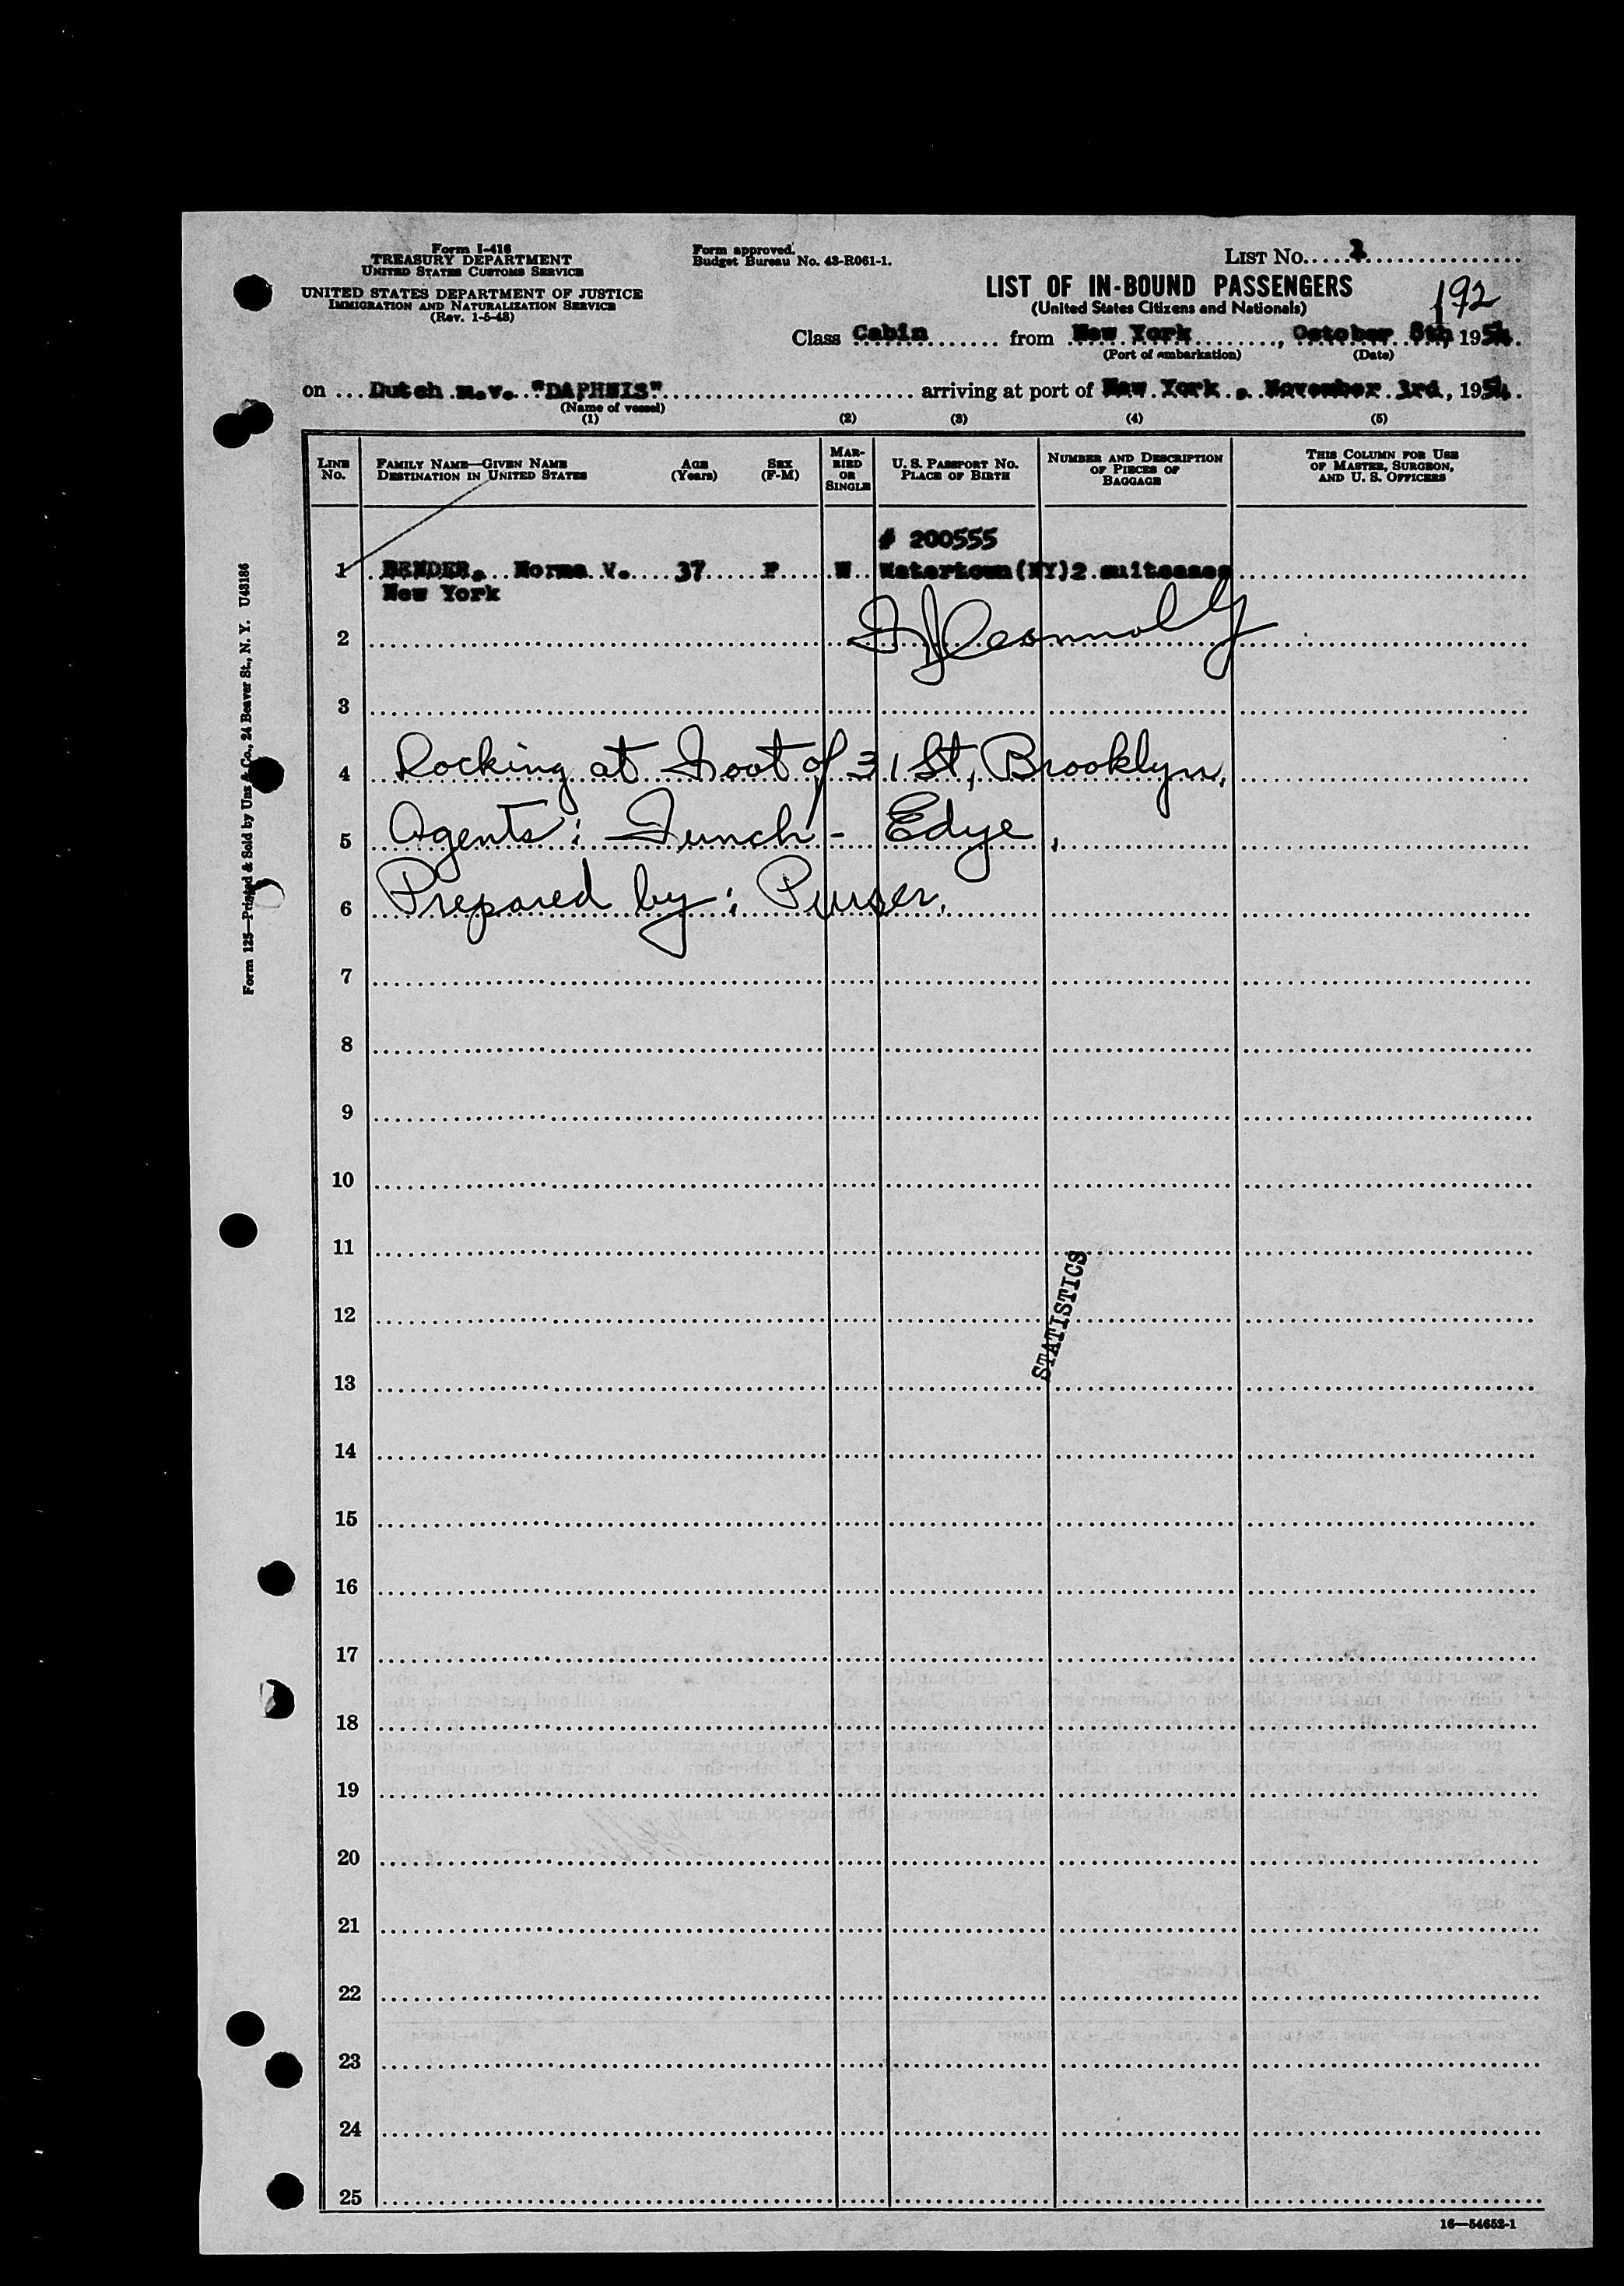 Form I-416
TREASURY DEPARTMENT
UNITED STATES CUSTOMS SERVICE
UNITED STATES DEPARTMENT OF JUSTICE
IMMIGRATION AND NATURALIZATION SERVICE
(Rev. 1-5-48)
Form approved.
Budget Bureau No. 43-R061-1.
LIST No. 3
LIST OF IN-BOUND PASSENGERS
(United States Citizens and Nationals)
192
Class Cabin from New York, October 8th, 1954.
(Port of embarkation) (Date)
on Dutch m.v. "DAPHNIS" arriving at port of New York, November 3rd, 1954.
(Name of vessel)
(1) (2) (3) (4) (5)
LINE No. FAMILY NAME—GIVEN NAME DESTINATION IN UNITED STATES AGE (Years) SEX (F-M) MARRIED OR SINGLE U. S. PASSPORT No. PLACE OF BIRTH NUMBER AND DESCRIPTION OF PIECES OF BAGGAGE THIS COLUMN FOR USE OF MASTER, SURGEON, AND U. S. OFFICERS
# 200555
1 BENDER, Norma V. 37 F Watertown(NY) 2 suitcases
New York
2 Connolly
3
4 Docking at Foot of 31 St, Brooklyn,
5 Agents: Funch - Edye,
6 Prepared by: Purser.
7
8
9
10
11
12
13
14
15
16
17
18
19
20
21
22
23
24
25
STATISTICS
Form 125—Printed & Sold by Unz & Co., 24 Beaver St., N. Y. U43186
16—54652-1